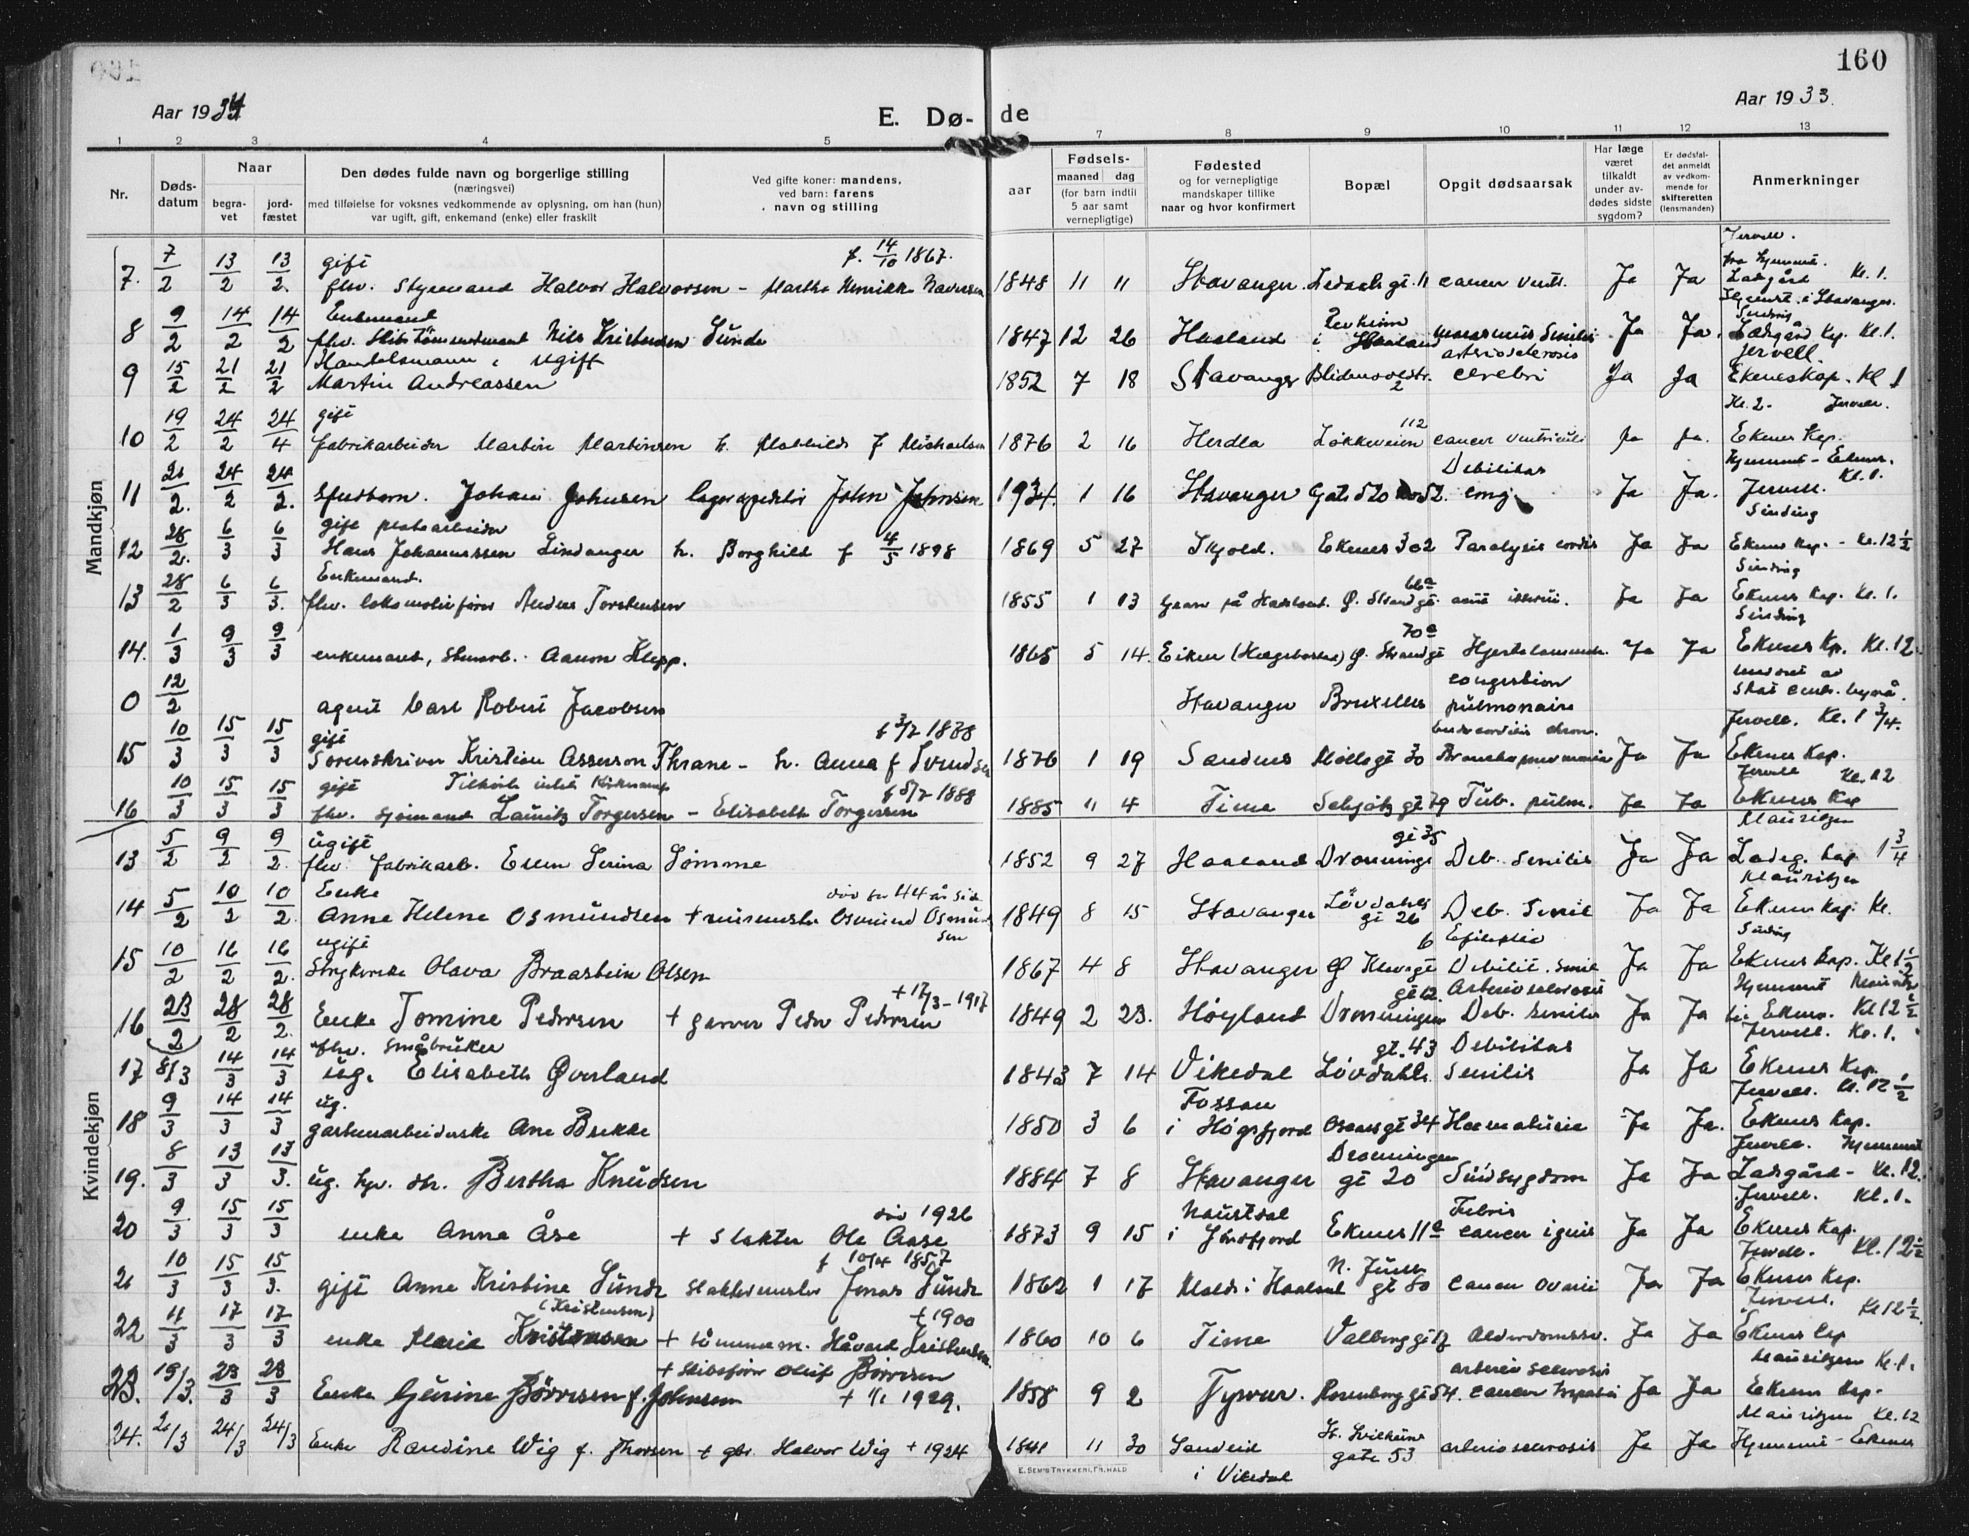 160
Aar 1934
E. Dø-
de
Aar 1933.
1 2 3 4 5 7 8 9 10 11 12 13
Nr.
Døds-
datum
Naar
begra-
vet
jord-
fæstet
Den dødes fulde navn og borgerlige stilling
(næringsvei)
med tilføielse for voksnes vedkommende av oplysning, om han (hun)
var ugift, gift, enkemand (enke) eller fraskilt
Ved gifte koner: mandens,
ved barn: farens
navn og stilling
aar
Fødsels-
maaned dag
(for barn indtil
5 aar samt
vernepligtige)
Fødested
og for vernepligtige
mandskaper tillike
naar og hvor konfirmert
Bopæl
Opgit dødsaarsak
Har læge
været
tilkaldt
under av-
dødes sidste
sygdom?
Er dødsfal-
det anmeldt
av vedkom-
mende for
skifteretten
(lensmanden)
Anmerkninger
Mandkjøn
Jervell.
gift f. 14/10 1867.
7. 7/2 13/2 13/2. fhv. Styrmand Halvor Halvorsen - Martha 1848 11 11 Stavanger. cancer ventr. Ja Ja Ladgård Kl. 1.
Enkemand
8 9/2 14/2 14/2 fhv. Nils Kristensen Sunde 1847 12 26 Haaland i Haaland marasmus senilis Ja Ja. Ladgård Kp. Kl. 1.
Handelsmann, ugift arteriosclerosis Jervell.
9 15/2 21/2 21/2 Martin Andreassen 1852 7 18 Stavanger 2 cerebri Ja Ja Ekeneskap. Kl 1
gift Kl. 2. Jervell.
10 19/2 24/2 24/4 fabrikarbeider Martin Martinsen h. Mathilde f Michaelsen 1876 2 16 Herdla Løkkeveien 112 cancer ventriculi Ja Ja. Ekenes Kap.
Debilitas Hjemmet - Ekenes.
11 21/2. 24/2 24/2. Johan Johnsen John Johnsen 1934. 1 16 Stavanger cong. Ja Ja. Jervell. Kl. 1.
gift Sinding
12 28/2. 6/3 6/3 Hans Johannessen Lindanger h. Borghild f 4/5 1898 1869 5 27 Skjold. Ekenes 302 Paralysis cordis Ja Ja Ekenes Kap. - Kl. 12 1/2
Enkemand. Sinding
13 28/2 6/3 6/3. fhv. lokomotivfører Anders Torstensen 1855 1 13 Ø. Strandgt. 66a Ja Ja Ekenes Kap. Kl. 1.
Sinding
14. 1/3 9/3 9/3 enkemand, Stenarb. Aanon Klepp. 1865 5 14. Eiken (Hægebostad) Ø. Strandgt 70a Ja Ja Ekenes Kp. Kl. 12.
0 12/2 agent Carl Robert Jacobsen Stavanger Bruxelles congestion pulmonaire
gift f 3/7 1878 Endocarditis chron. Jervell. Kl. 1 3/4.
15 10/3 15/3 15/3 Sorenskriver Kristian Assersen Thrane - h. Anna f Svendsen 1876 1 19 Sandnes Møllegt 30 Bronchopneumonia Ja Ja Ekenes Kap.
gift f 5/7 1888 Jervell Kl. 12
16 10/3 15/3 15/3 fhv. sjømand Lauritz Torgersen - Elisabeth Torgersen 1885 11 4 Time Schjøtz gt 79 Tub. pulm. Ja Ja Ekenes Kap
Kvindekjøn
ugift gt 35 Mauritzen
13 5/2 9/2 9/2. fhv. fabrikarb. Elen Serina Sømme 1852 9 27 Haaland Dronnings Deb. Senilis Ja Ja Ladeg. Kap 1 3/4
Enke død for 44 år sid Mauritzen
14 5/2 10/2 10/2. Anne Helene Osmundsen + murmester Osmund Osmundsen 1849 8 15 Stavanger Løvdahls gt 26 Deb. Senil Ja Ja Ekenes Kap. Kl.
ugift Epilepsia Sinding
15 10/2 16/2 16/2. Strykerske Olava Braastein Olsen 1867 4 8 Stavanger Ø Klevegt 6 Debilit. Senil Ja Ja Ekenes Kap. Kl 1 1/2
+ 17/3-1917 gt 12. Arteriosclerosis Hjemmet
16 23/2 28/2 28/2. Enke Tomine Pedersen + garver Peder Pedersen 1849 2 23. Høyland Dronningen Deb. Senilis Ja Ja til Ekenes. Kl 12 1/2
fhv. Småbruker gt. 43 Debilitas Jervell. Kl. 1.
17 8/3 14/3 14/3 ug. Elisabeth Øverland 1843 7 14 Vikedal Løvdahls. Senilis Ja Ja Ekenes Kap.
ug. Fossan Jervell. Kl. 12 1/2
18 9/3 14/3 14/3 garberarbeiderske Ane Brekke 1850 3 6 i Høgsfjord gt 34 Haematurie Ja Ja. Ekenes Kap.
Dronningen Jervell. Hjemmet
19. 8/3 13/3 13/3. ug. Bertha Knudsen 1884 7 8 Stavanger gt 20 Sindsygdom Ja Ja Ladegård - Kl. 12.
død 1926 Naustdal Febris Jervell. Kl. 1.
20 9/3 15/3 15/3 enke Anna Åse + Slakter Ole Aase 1873 9 15 i Søndfjord Ekenes 11a cancer Ja Ja Ekenes Kap.
f 10/4 1857 Jervell. Kl. 12 1/2
21 10/3 15/3 15/3. gift Anne Kristine Sunde Slaktermester Jonas Sunde 1862 1 17 Malde i Haaland gt 80 cancer ovarii Ja Ja Ekenes Kap.
(Kristensen) + 1900 Jervell. Kl 12 1/2.
22 11/3 17/3 17/3 enke Marie Kristensen + tømmerm. Håvard Kristensen 1860 10 6 Time Valberggt 17 Alderdomssv. Ja Ja Ekenes Kap
+ Skibsfører Oluf Børresen arteriosclerosis Mauritzen Kl. 1.
23. 19/3. 23/3 23/3 Enke Gurine Børresen f. Johnsen + 1/1 1929. 1858 9 2 Tysvær. Rosenberg gt 54. cancer hepatis Ja Ja Ekenes Kap.
Mauritzen Kl. 12
24. 21/3 24/3 24/3 Enke Randine Wig f. Thorsen + gbr. Halvor Wig + 1924 1841 11 30 Sandeid i Vikedal gate 53 arteriosclerosis Ja Ja Hjemmet - Ekenes
E. SEM'S TRYKKERI, FR.HALD